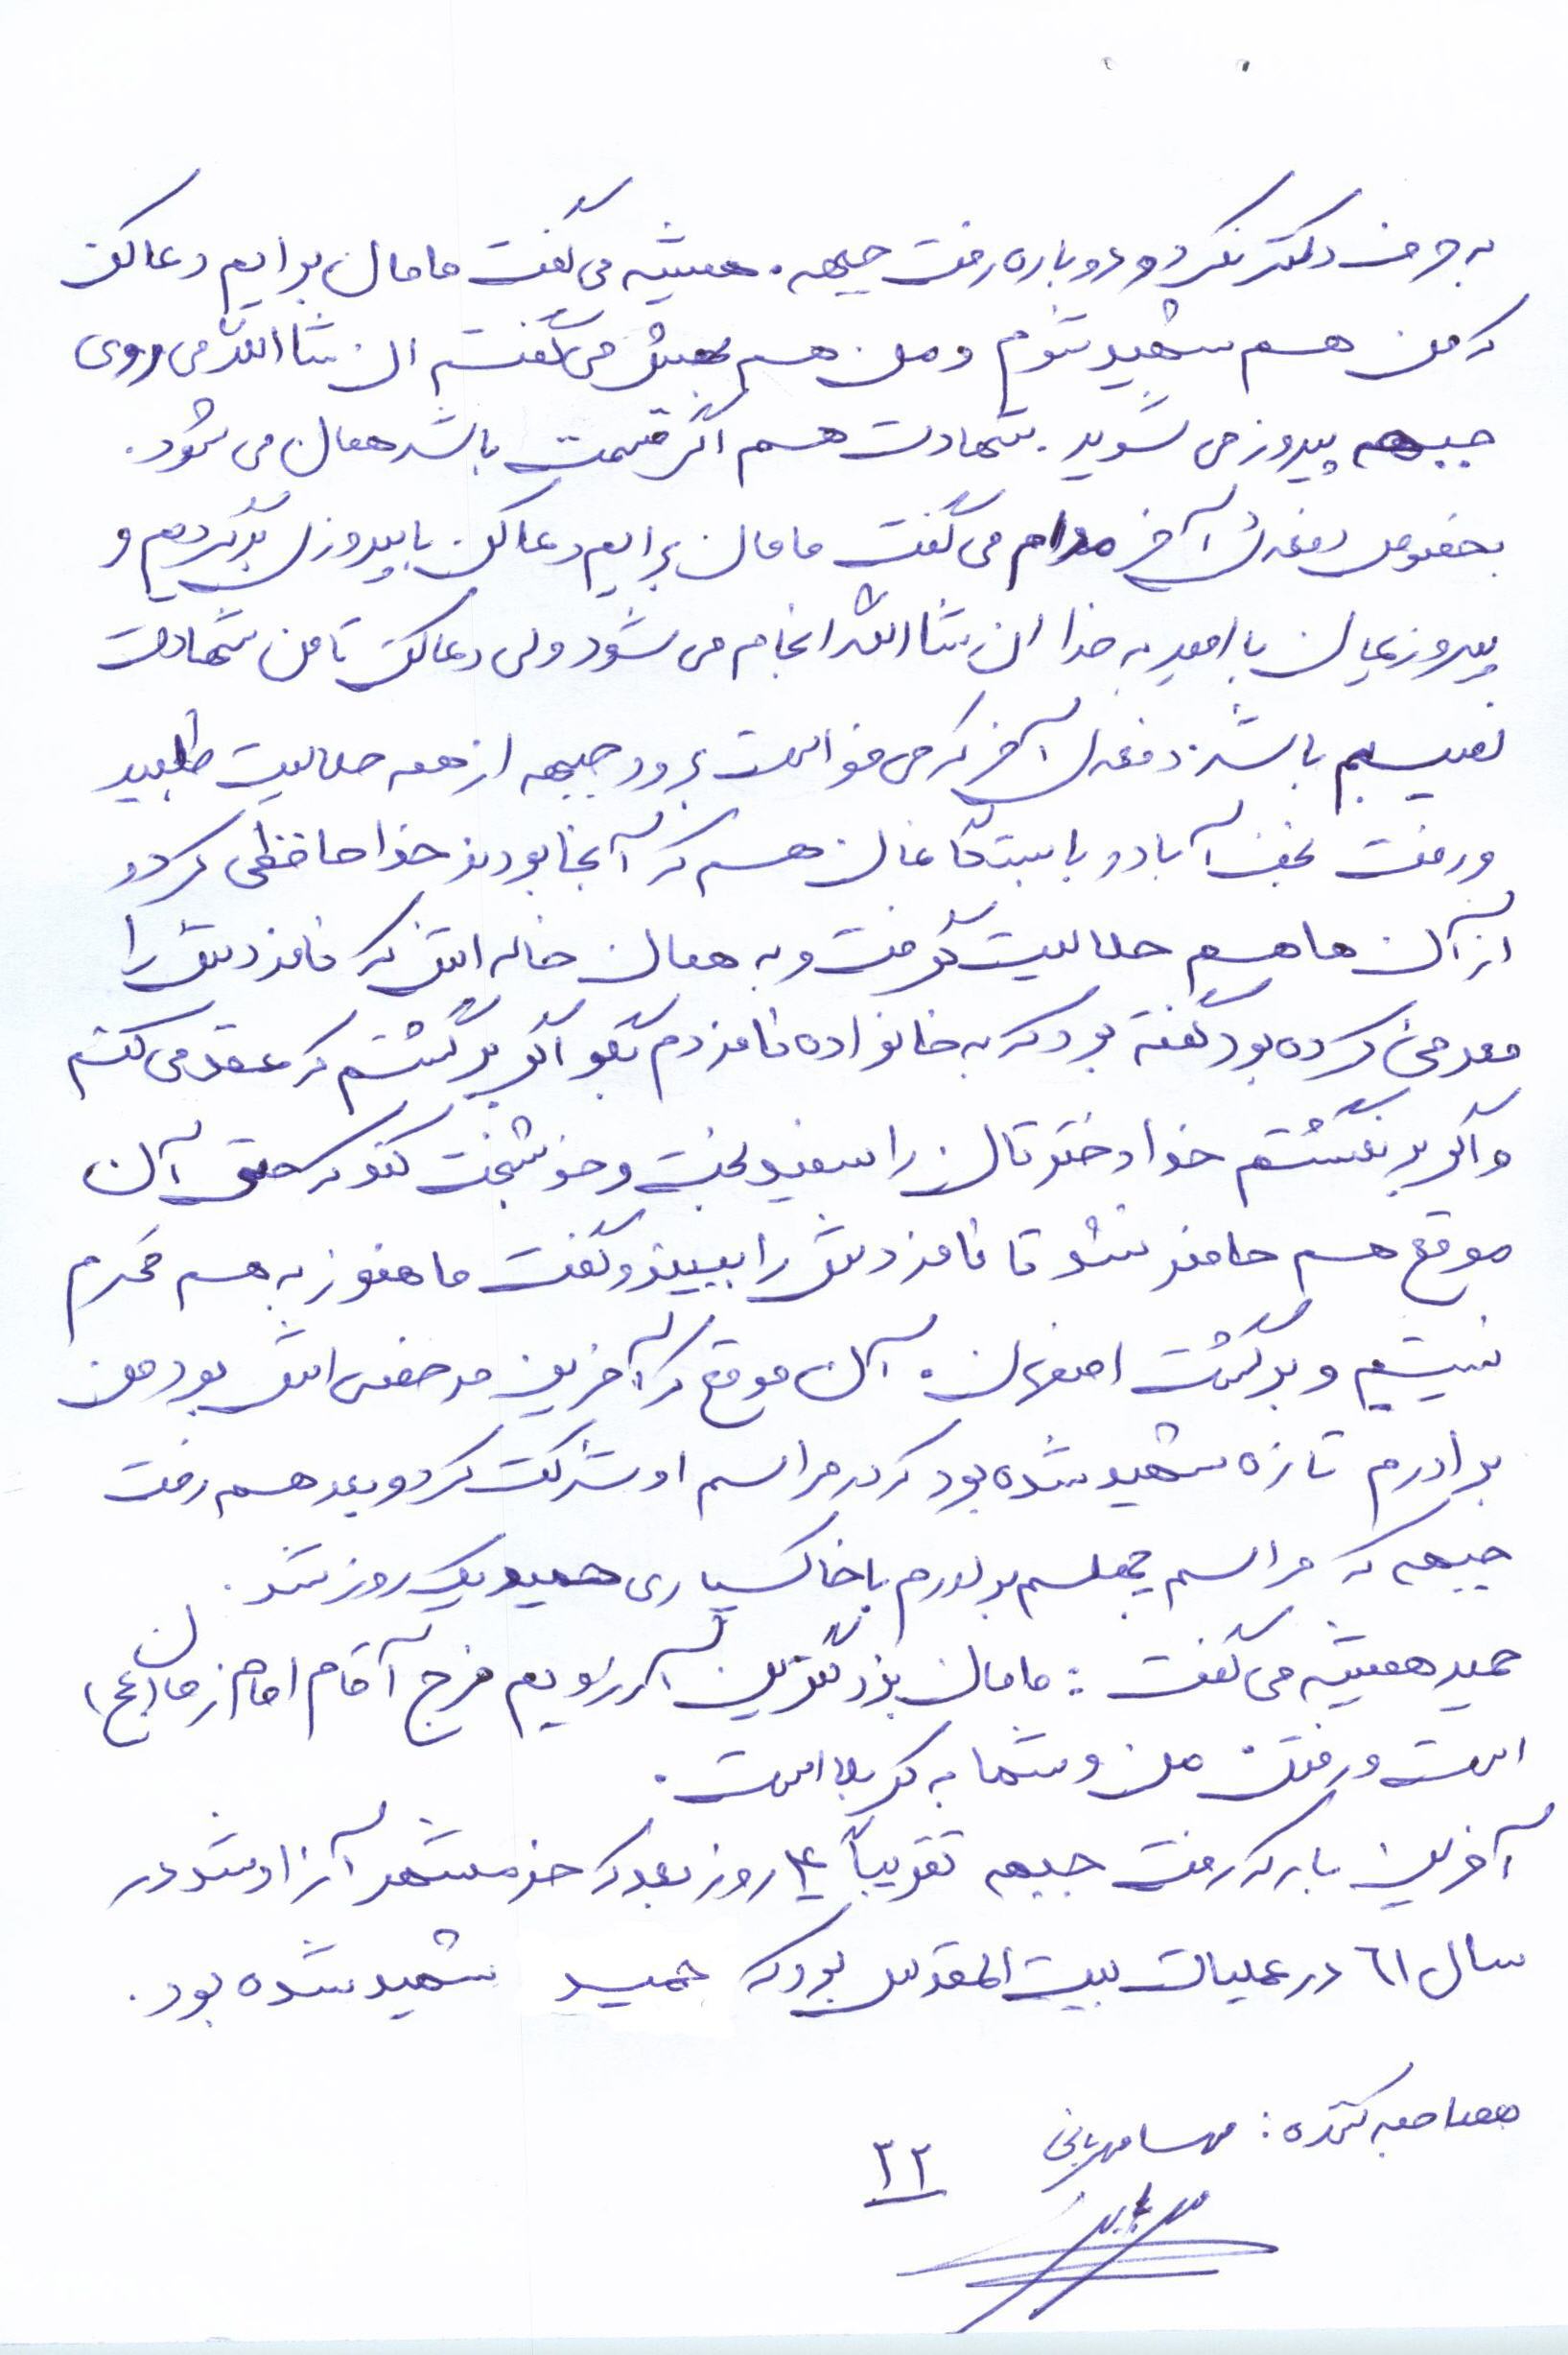 به حرف دکتر نکرد و دوباره رفت جبهه. همیشه می گفت مامان برایم دعا کن
که من هم شهید شوم و من هم بهش می گفتم ان شاالله می روی
جبهه پیروز می شوید. شهادت هم اگر قسمت باشد همان می شود.
بخصوص دفعه ی آخر مدام می گفت مامان برایم دعا کن با پیروزی برگردیم و
پیروزیمان با امید به خدا ان شاالله انجام می شود ولی دعا کن تا من شهادت
نصیبم باشد. دفعه ی آخر که می خواست برود جبهه از همه حلالیت طلبید
و رفت نجف آباد و با بستگانمان هم که آنجا بودند خداحافظی کرد و
از آن ها هم حلالیت گرفت و به همان خاله اش که نامزدش را
معرفی کرده بود گفته بود که به خانواده نامزدم بگو اگر برگشتم که عقد می کنم
و اگر برنگشتم خدا دخترتان را سفید بخت و خوشبخت کند که حتی آن
موقع هم حاضر نشد تا نامزدش را ببیند و گفت ما هنوز به هم محرم
نیستیم و برگشت اصفهان. آن موقع که آخرین مرخصی اش بود من
برادرم تازه شهید شده بود که در مراسم او شرکت کرد و بعد هم رفت
جبهه که مراسم چهلم برادرم با خاکسپاری حمید یک روز شد.
حمید همیشه می گفت: مامان بزرگترین آرزویم فرج آقام امام زمان (عج)
است و رفتن من و شما به کربلا است.
آخرین بار که رفت جبهه تقریباً ۴۰ روز بعد که خرمشهر آزاد شد در
سال ٦١ در عملیات بیت المقدس بود که حمید شهید شده بود.
مصاحبه کننده: مهسا مهربانی
۳۲